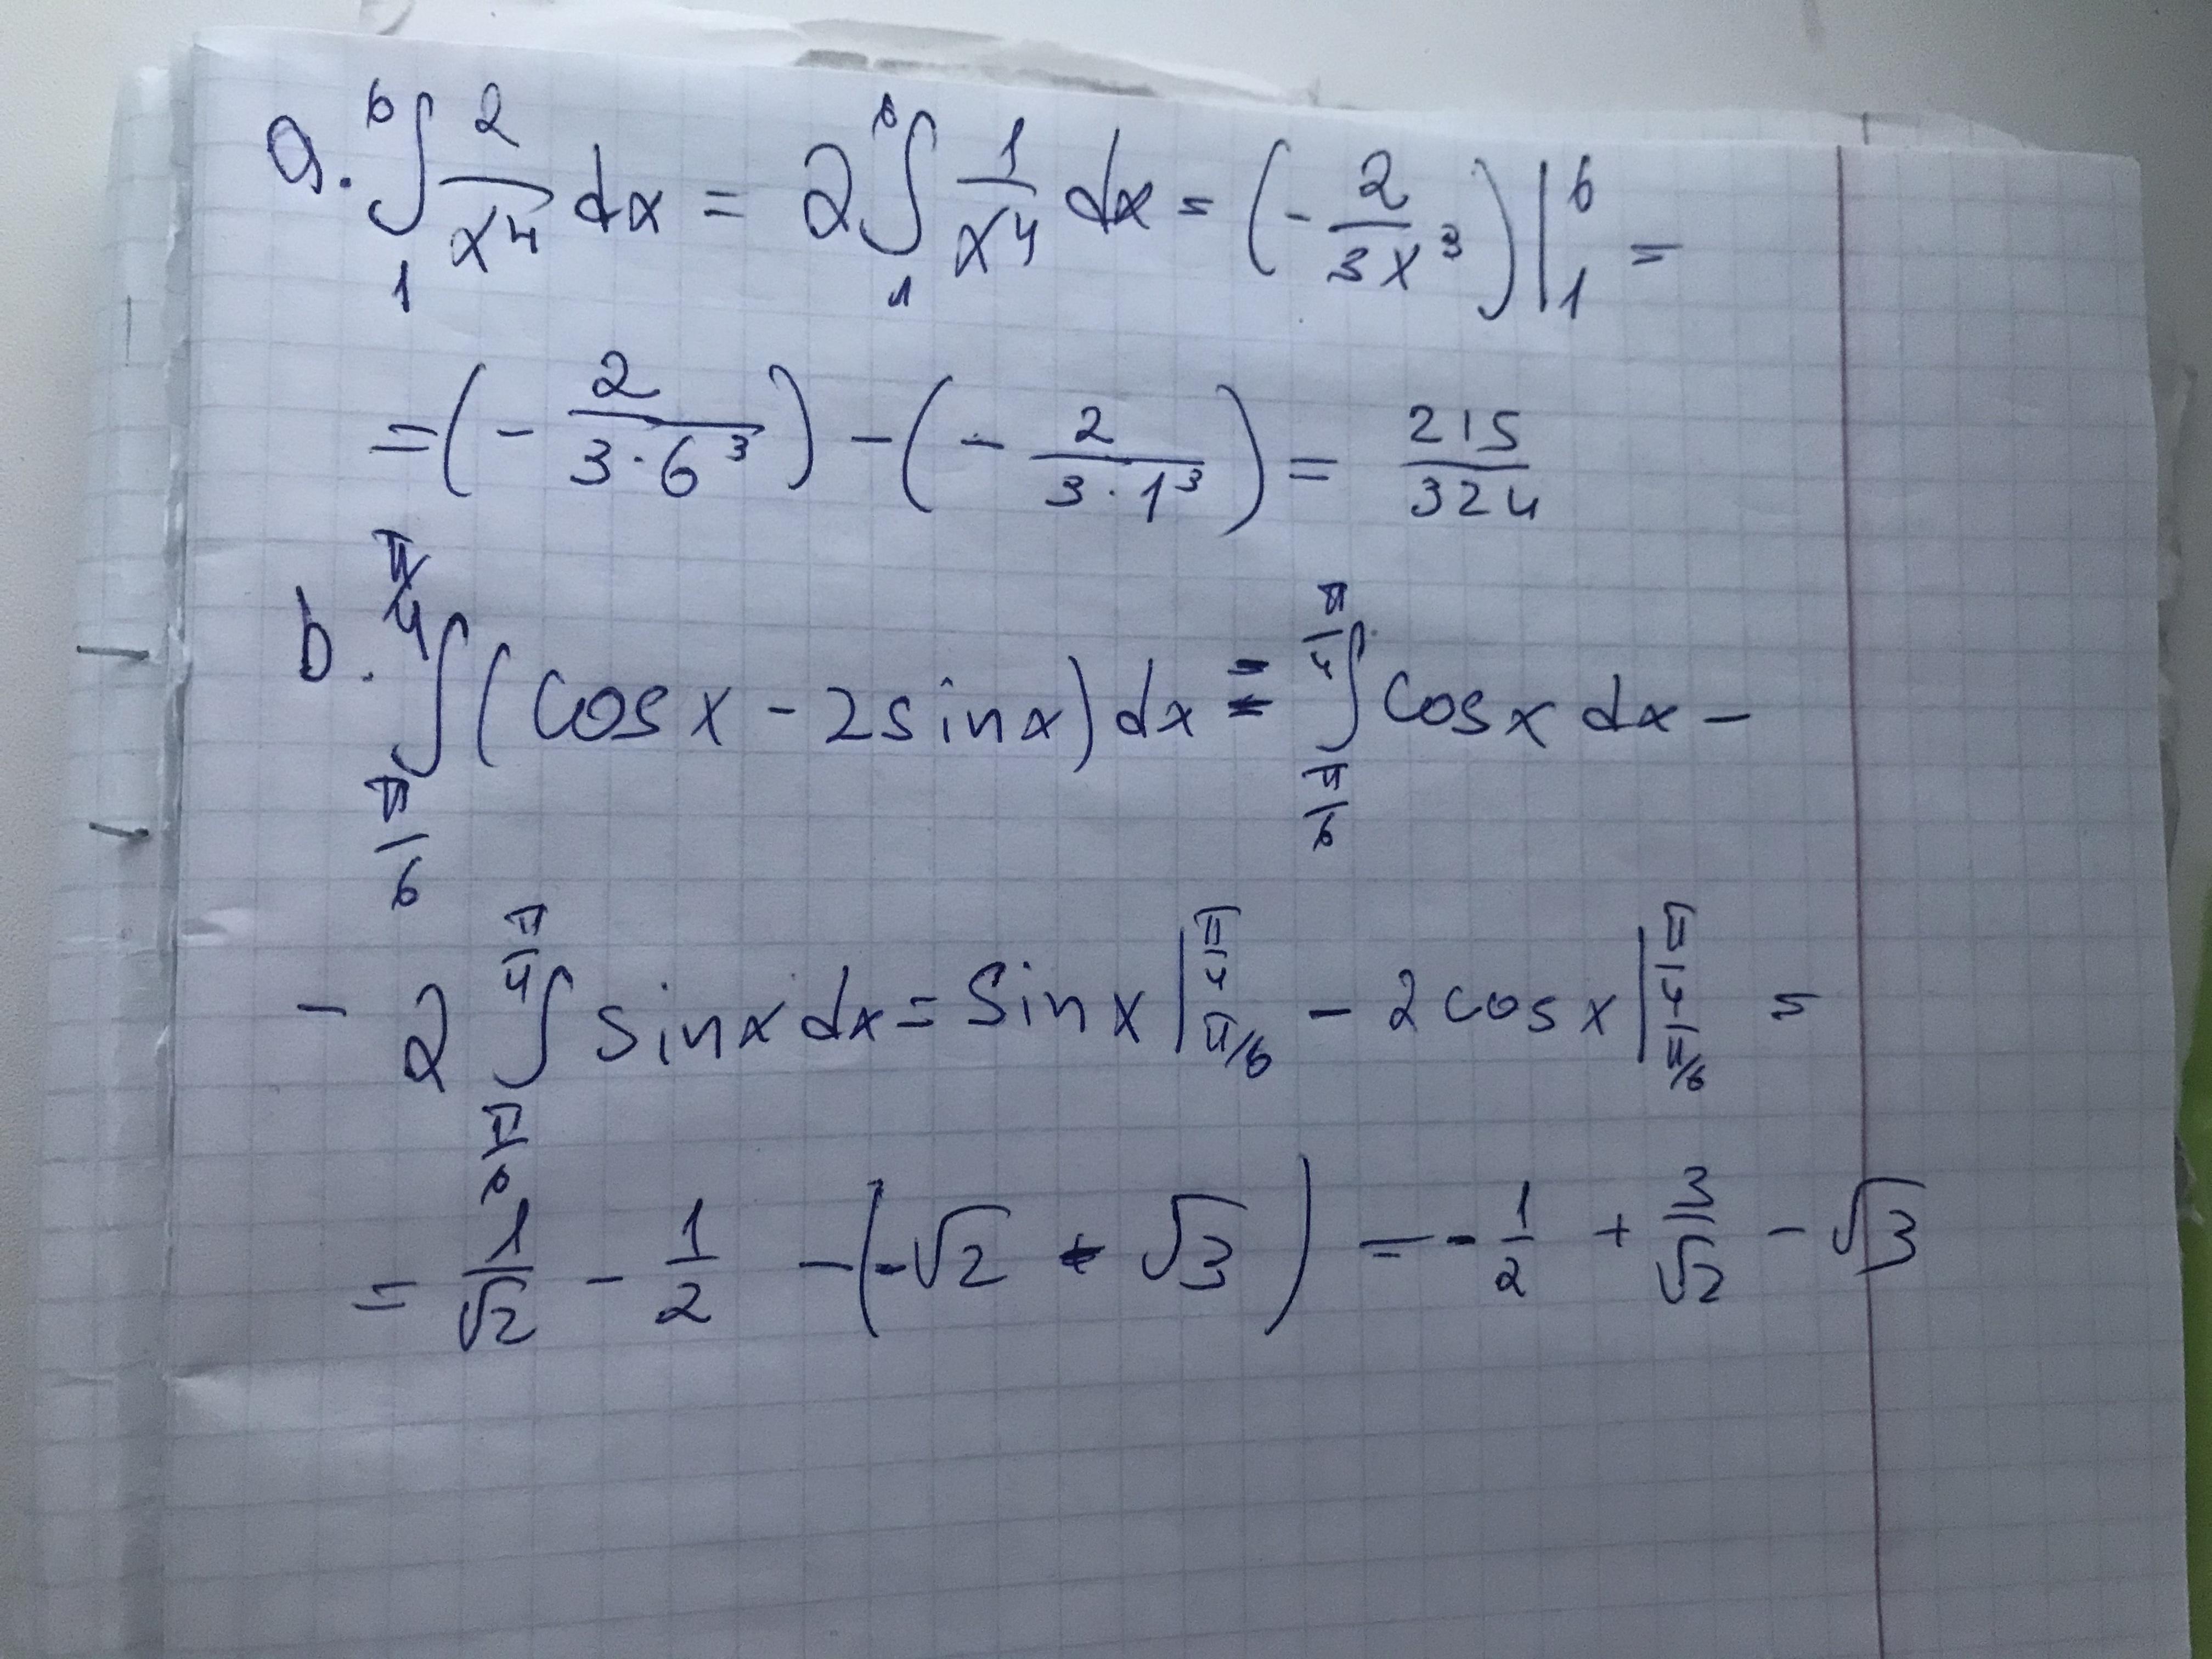 a. ∫₁⁶ 2/x⁴ dx = 2 ∫₁⁶ 1/x⁴ dx = (- 2/3x³) |₁⁶ =
= (- 2/3·6³) - (- 2/3·1³) = 215/324
b. ∫_{π/6}^{π/4} (cos x - 2 sin x) dx = ∫_{π/6}^{π/4} cos x dx -
- 2 ∫_{π/6}^{π/4} sin x dx = sin x |_{π/6}^{π/4} - 2 cos x |_{π/6}^{π/4} =
= 1/√2 - 1/2 - (-√2 + √3) = - 1/2 + 3/√2 - √3